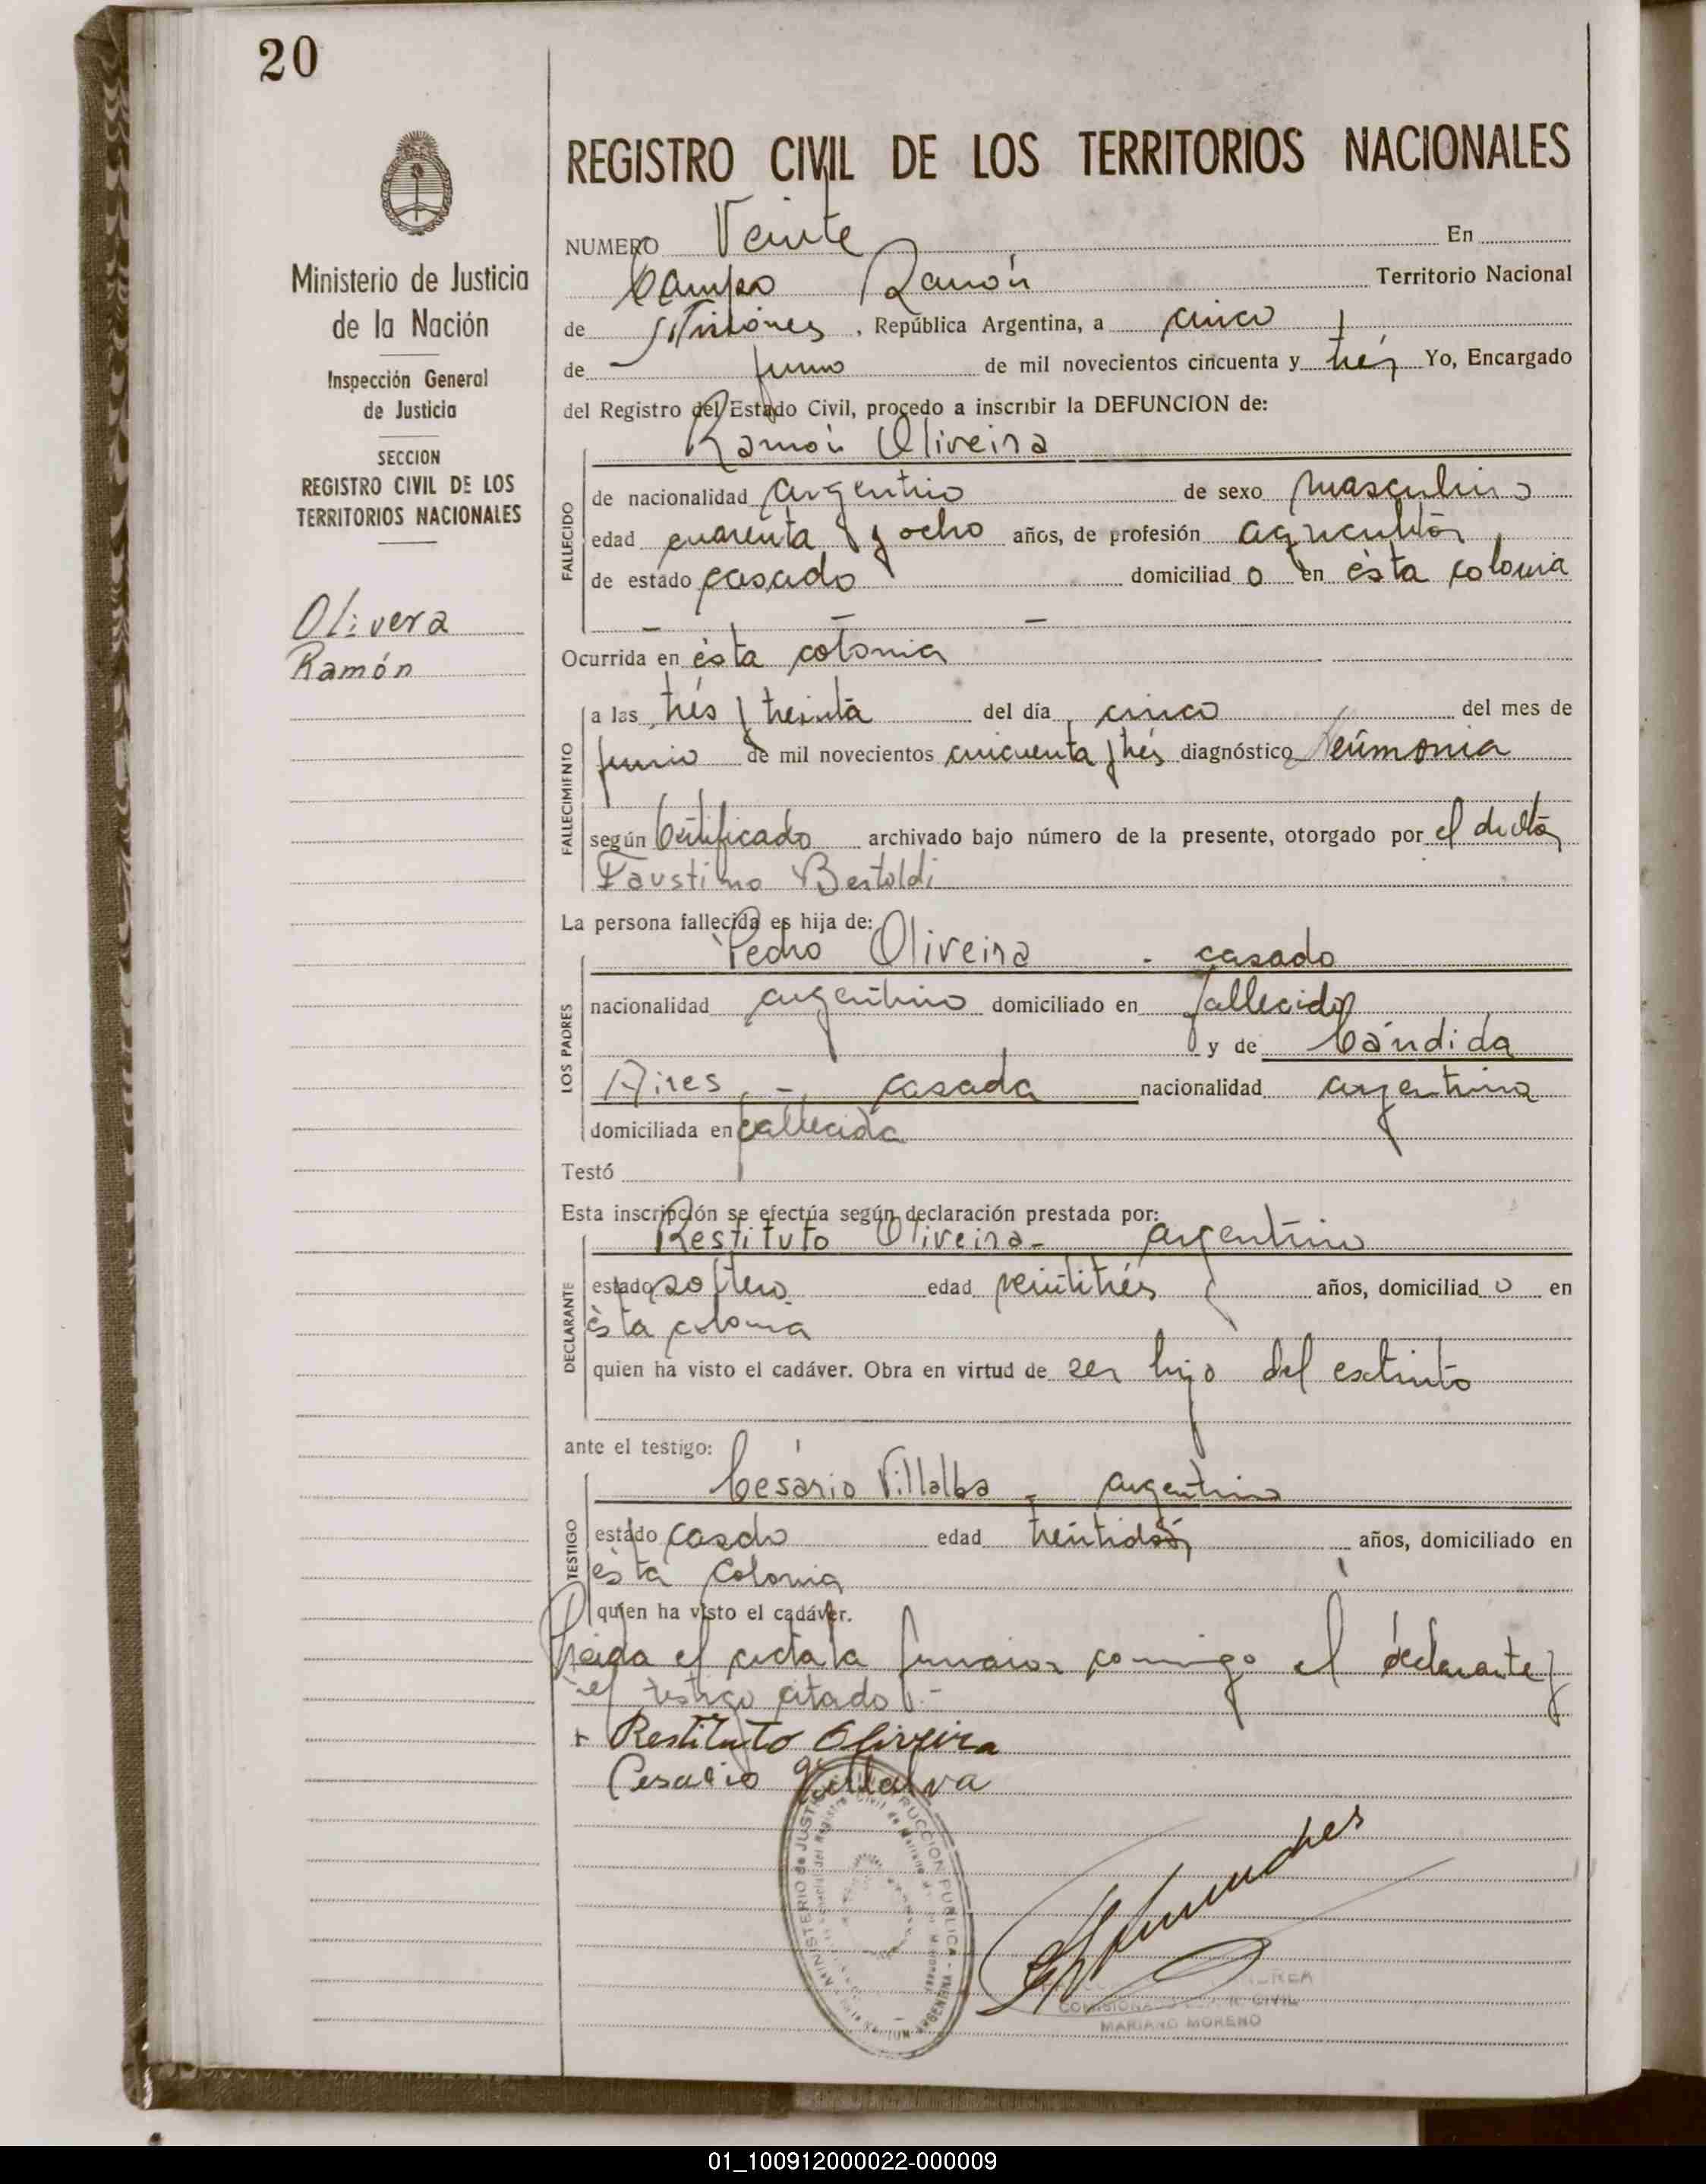 20
REGISTRO CIVIL DE LOS TERRITORIOS NACIONALES
Ministerio de Justicia
de la Nación
Inspección General
de Justicia
SECCION
REGISTRO CIVIL DE LOS
TERRITORIOS NACIONALES
Olivera
Ramón
NUMERO Veinte En
Campo Ramón Territorio Nacional
de Misiones, República Argentina, a cinco
de junio de mil novecientos cincuenta y trés Yo, Encargado
del Registro del Estado Civil, procedo a inscribir la DEFUNCION de:
Ramón Oliveira
FALLECIDO
de nacionalidad argentino de sexo masculino
edad cuarenta y ocho años, de profesión agricultor
de estado casado domiciliad o en ésta colonia
— — —
Ocurrida en ésta colonia
FALLECIMIENTO
a las trés y treinta del día cinco del mes de
junio de mil novecientos cincuenta y trés diagnóstico Neumonia
según Certificado archivado bajo número de la presente, otorgado por el doctor
Faustino Bertoldi
La persona fallecida es hija de:
LOS PADRES
Pedro Oliveira - casado
nacionalidad argentino domiciliado en fallecido
y de Cándida
Aires - casada nacionalidad argentina
domiciliada en fallecida
Testó
Esta inscripción se efectúa según declaración prestada por:
DECLARANTE
Restituto Oliveira - argentino
estado soltero edad veintitrés años, domiciliad o en
ésta colonia
quien ha visto el cadáver. Obra en virtud de ser hijo del extinto
ante el testigo:
TESTIGO
Cesário Villalba - argentino
estado casdo edad treintidós años, domiciliado en
ésta colonia
quien ha visto el cadáver.
Leida el acta la firmaron conmigo el declarante y
el testigo citado.-
Restituto Oliveira
Cesario Villalva
MINISTERIO de JUSTICIA INSTRUCCION PUBLICA - ARGENTINA
COMISIONADO REG. CIVIL
MARIANO MORENO
01_100912000022-000009